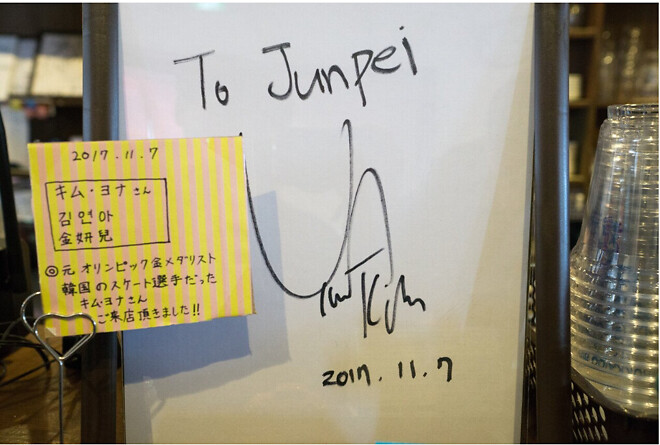 To Junpei
Yuna Kim
2017. 11. 7
2017. 11. 7
キム・ヨナさん
김연아
金妍兒
◎元 オリンピック金メダリスト
韓国のスケート選手だった
キム・ヨナさん
ご来店頂きました!!